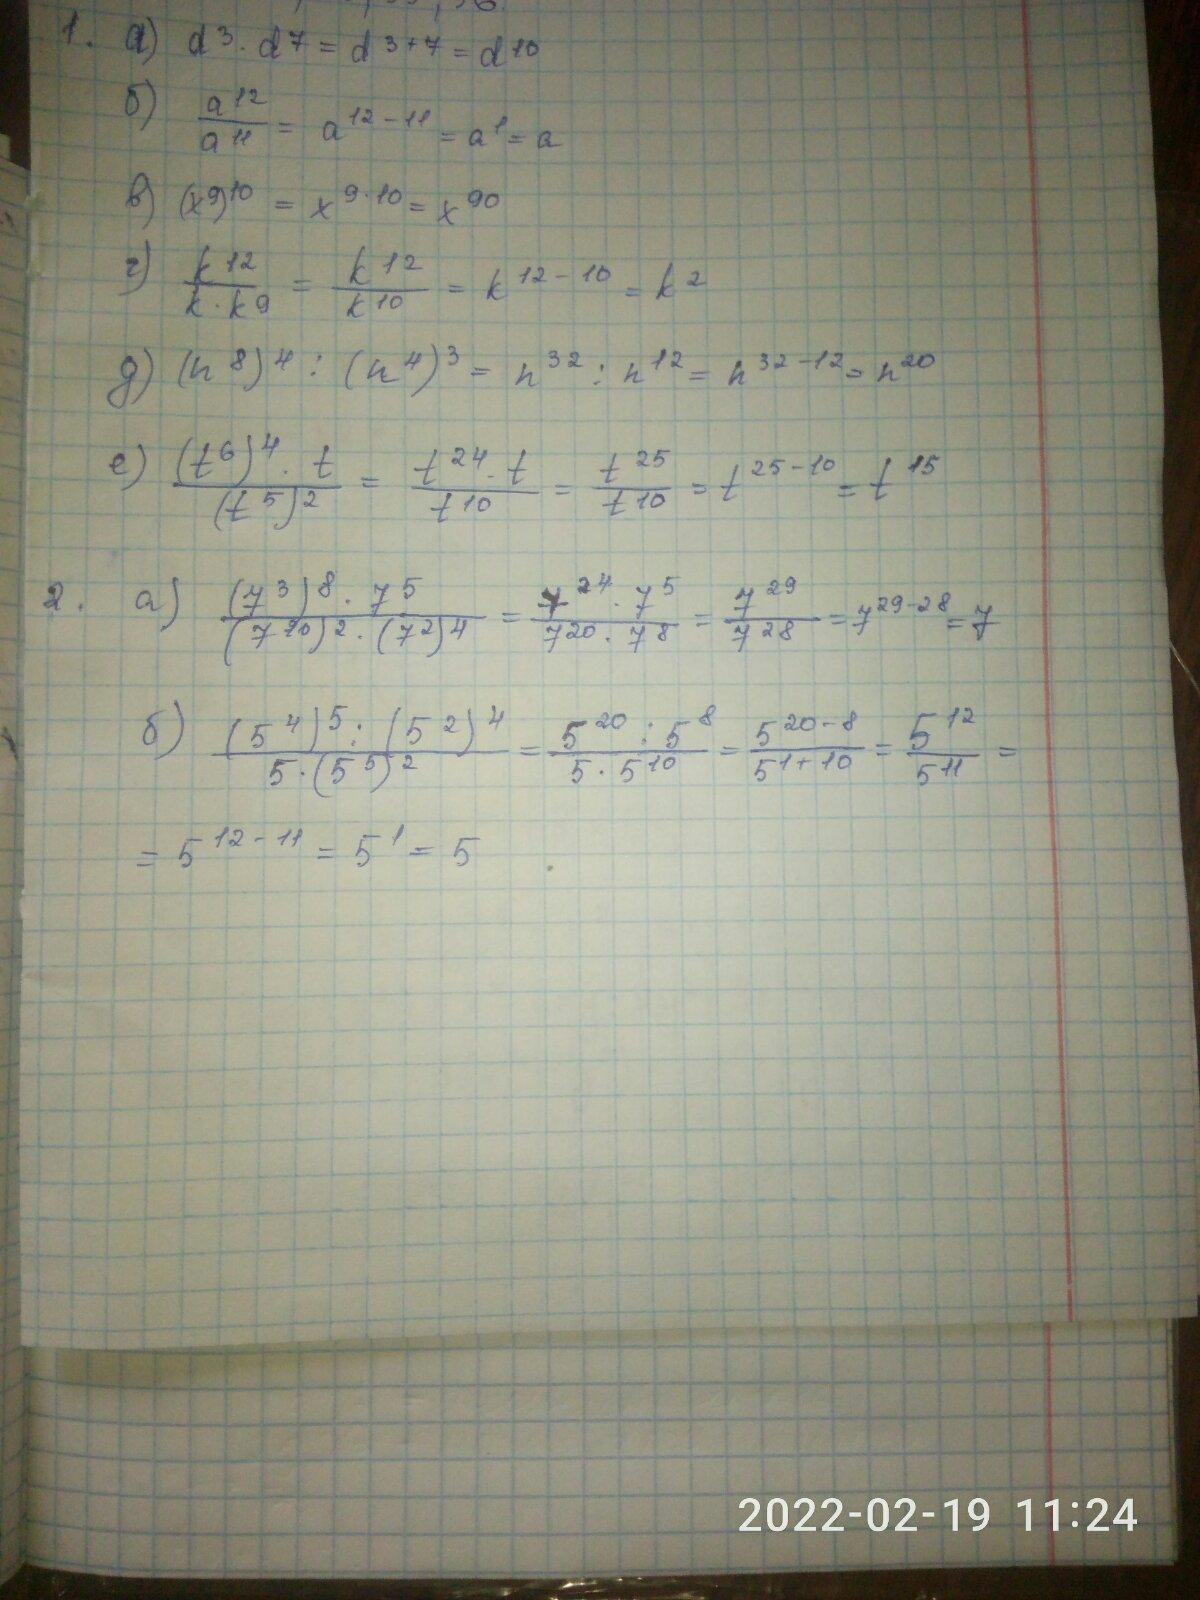 1. а) d³ · d⁷ = d³⁺⁷ = d¹⁰
б) a¹²/a¹¹ = a¹²⁻¹¹ = a¹ = a
в) (x⁹)¹⁰ = x⁹·¹⁰ = x⁹⁰
г) k¹²/(k · k⁹) = k¹²/k¹⁰ = k¹²⁻¹⁰ = k²
д) (n⁸)⁴ : (n⁴)³ = n³² : n¹² = n³²⁻¹² = n²⁰
е) ((t⁶)⁴ · t)/(t⁵)² = (t²⁴ · t)/t¹⁰ = t²⁵/t¹⁰ = t²⁵⁻¹⁰ = t¹⁵
2. а) ((7³)⁸ · 7⁵)/((7¹⁰)² · (7²)⁴) = (7²⁴ · 7⁵)/(7²⁰ · 7⁸) = 7²⁹/7²⁸ = 7²⁹⁻²⁸ = 7
б) ((5⁴)⁵ : (5²)⁴)/(5 · (5⁵)²) = (5²⁰ : 5⁸)/(5 · 5¹⁰) = 5²⁰⁻⁸/5¹⁺¹⁰ = 5¹²/5¹¹ =
= 5¹²⁻¹¹ = 5¹ = 5
2022-02-19 11:24